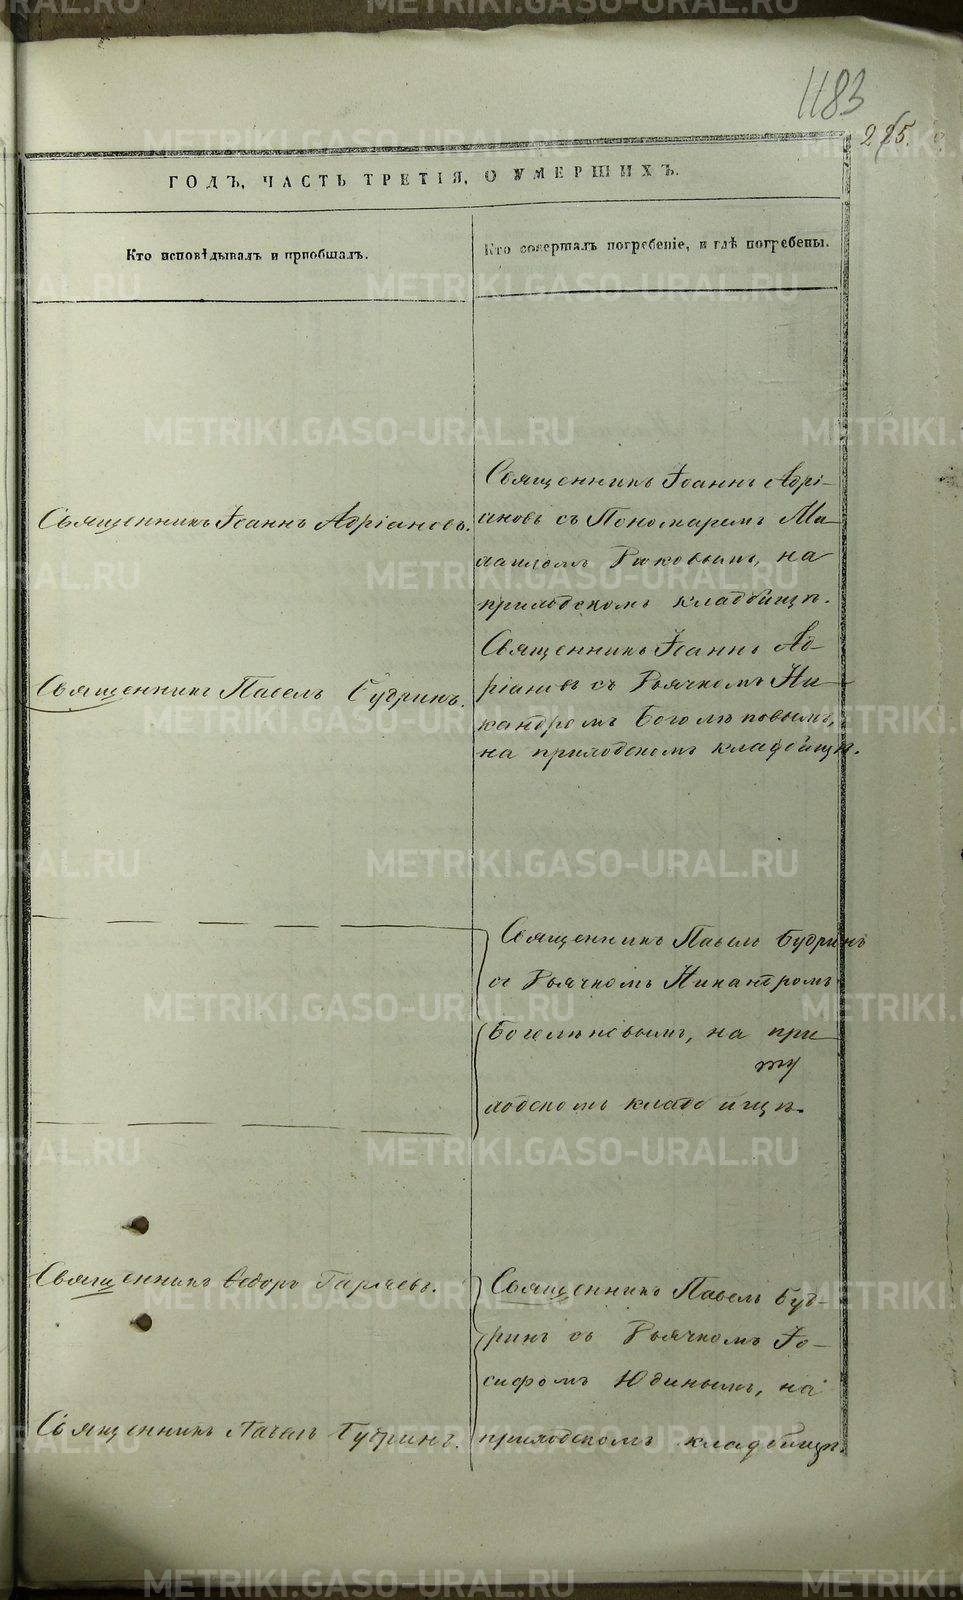 1183
ГОДЪ, ЧАСТЬ ТРЕТІЯ, О УМЕРШИХЪ.
Кто исповѣдывалъ и пріобщалъ.
Кто совершалъ погребеніе, и гдѣ погребены.
Священникъ Іоаннъ Адріановъ.
Священникъ Іоаннъ Адрі-
ановъ съ Пономаремъ Ми-
хаиломъ на
приходскомъ кладбищѣ.
Священникъ Павелъ Будринъ.
Священникъ Іоаннъ Ад-
ріановъ съ Дьячкомъ Ни-
кандромъ Боголѣповымъ,
на приходскомъ кладбищѣ.
Священникъ Павелъ Будринъ
съ Дьячкомъ Никандромъ
Боголѣповымъ, на при-
ходскомъ кладбищѣ.
Священникъ Ѳедоръ Горячевъ.
Священникъ Павелъ Буд-
ринъ съ Дьячкомъ Іо-
сифомъ Юдинымъ, на
приходскомъ кладбищѣ.
Священникъ Павелъ Будринъ.
METRIKI.GASO-URAL.RU